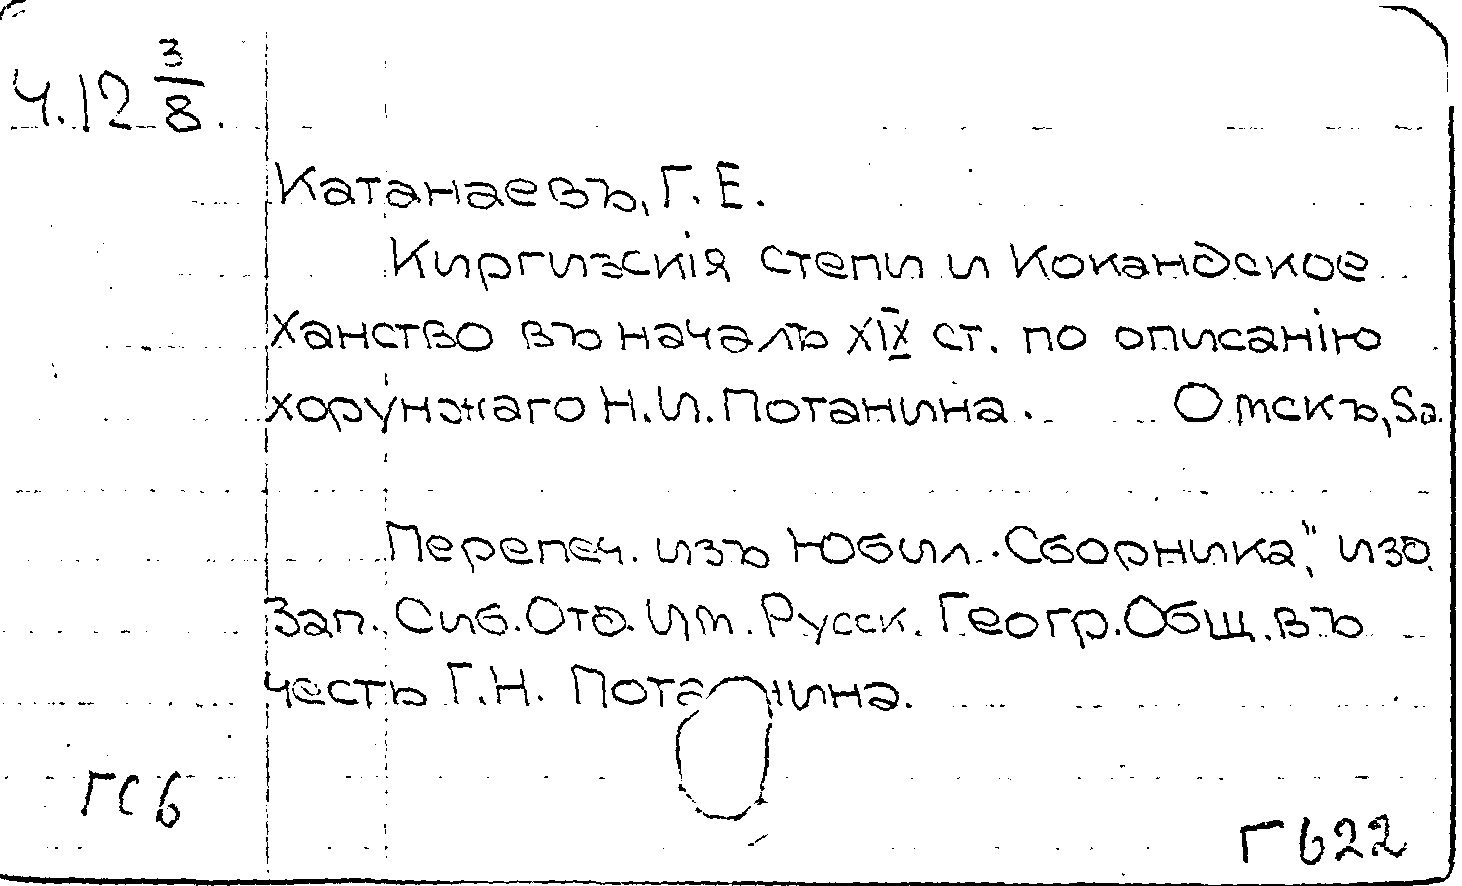 Ч.12 3/8.
Катанаевъ, Г. Е.
Киргизскія степи и Кокандское
Ханство въ началѣ XIX ст. по описанію
хорунжаго Н.И. Потанина. Омскъ, Sa.
Перепеч. изъ Юбил. Сборника," изо
Зап. Сиб. Отд. Им. Русск. Геогр. Общ. въ
честь Г.Н. Потанина.
ГСб
Г622